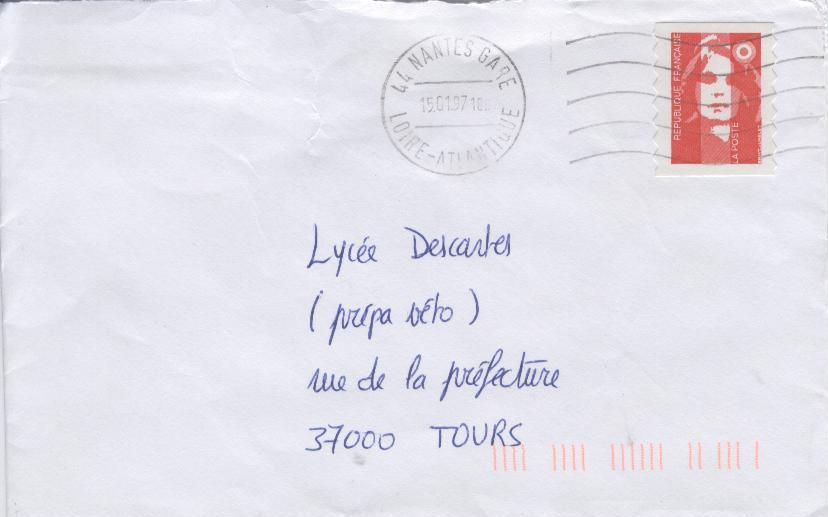 44 NANTES GARE
15.01.97
LOIRE-ATLANTIQUE
REPUBLIQUE FRANÇAISE
LA POSTE
Lycée Descartes
(prépa véto)
rue de la préfecture
37000 TOURS